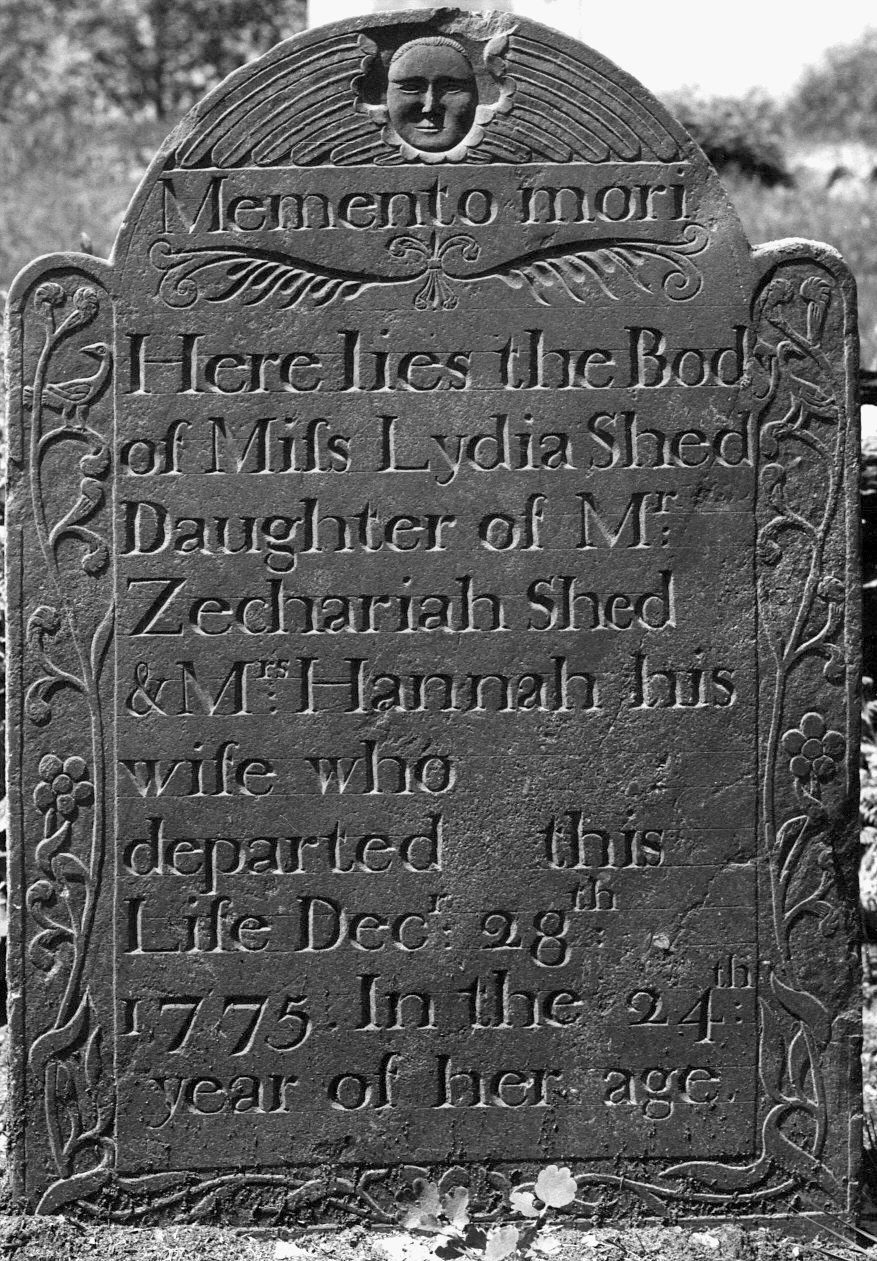 Memento mori
Here lies the Bod
of Miſs Lydia Shed
Daughter of Mʳ.
Zechariah Shed.
& Mʳˢ. Hannah his
wife who
departed this
Life Decʳ. 28ᵗʰ.
1775. In the 24ᵗʰ.
year of her age.